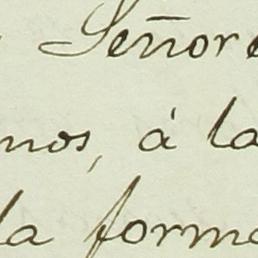 Señore
nos, á la
la forma